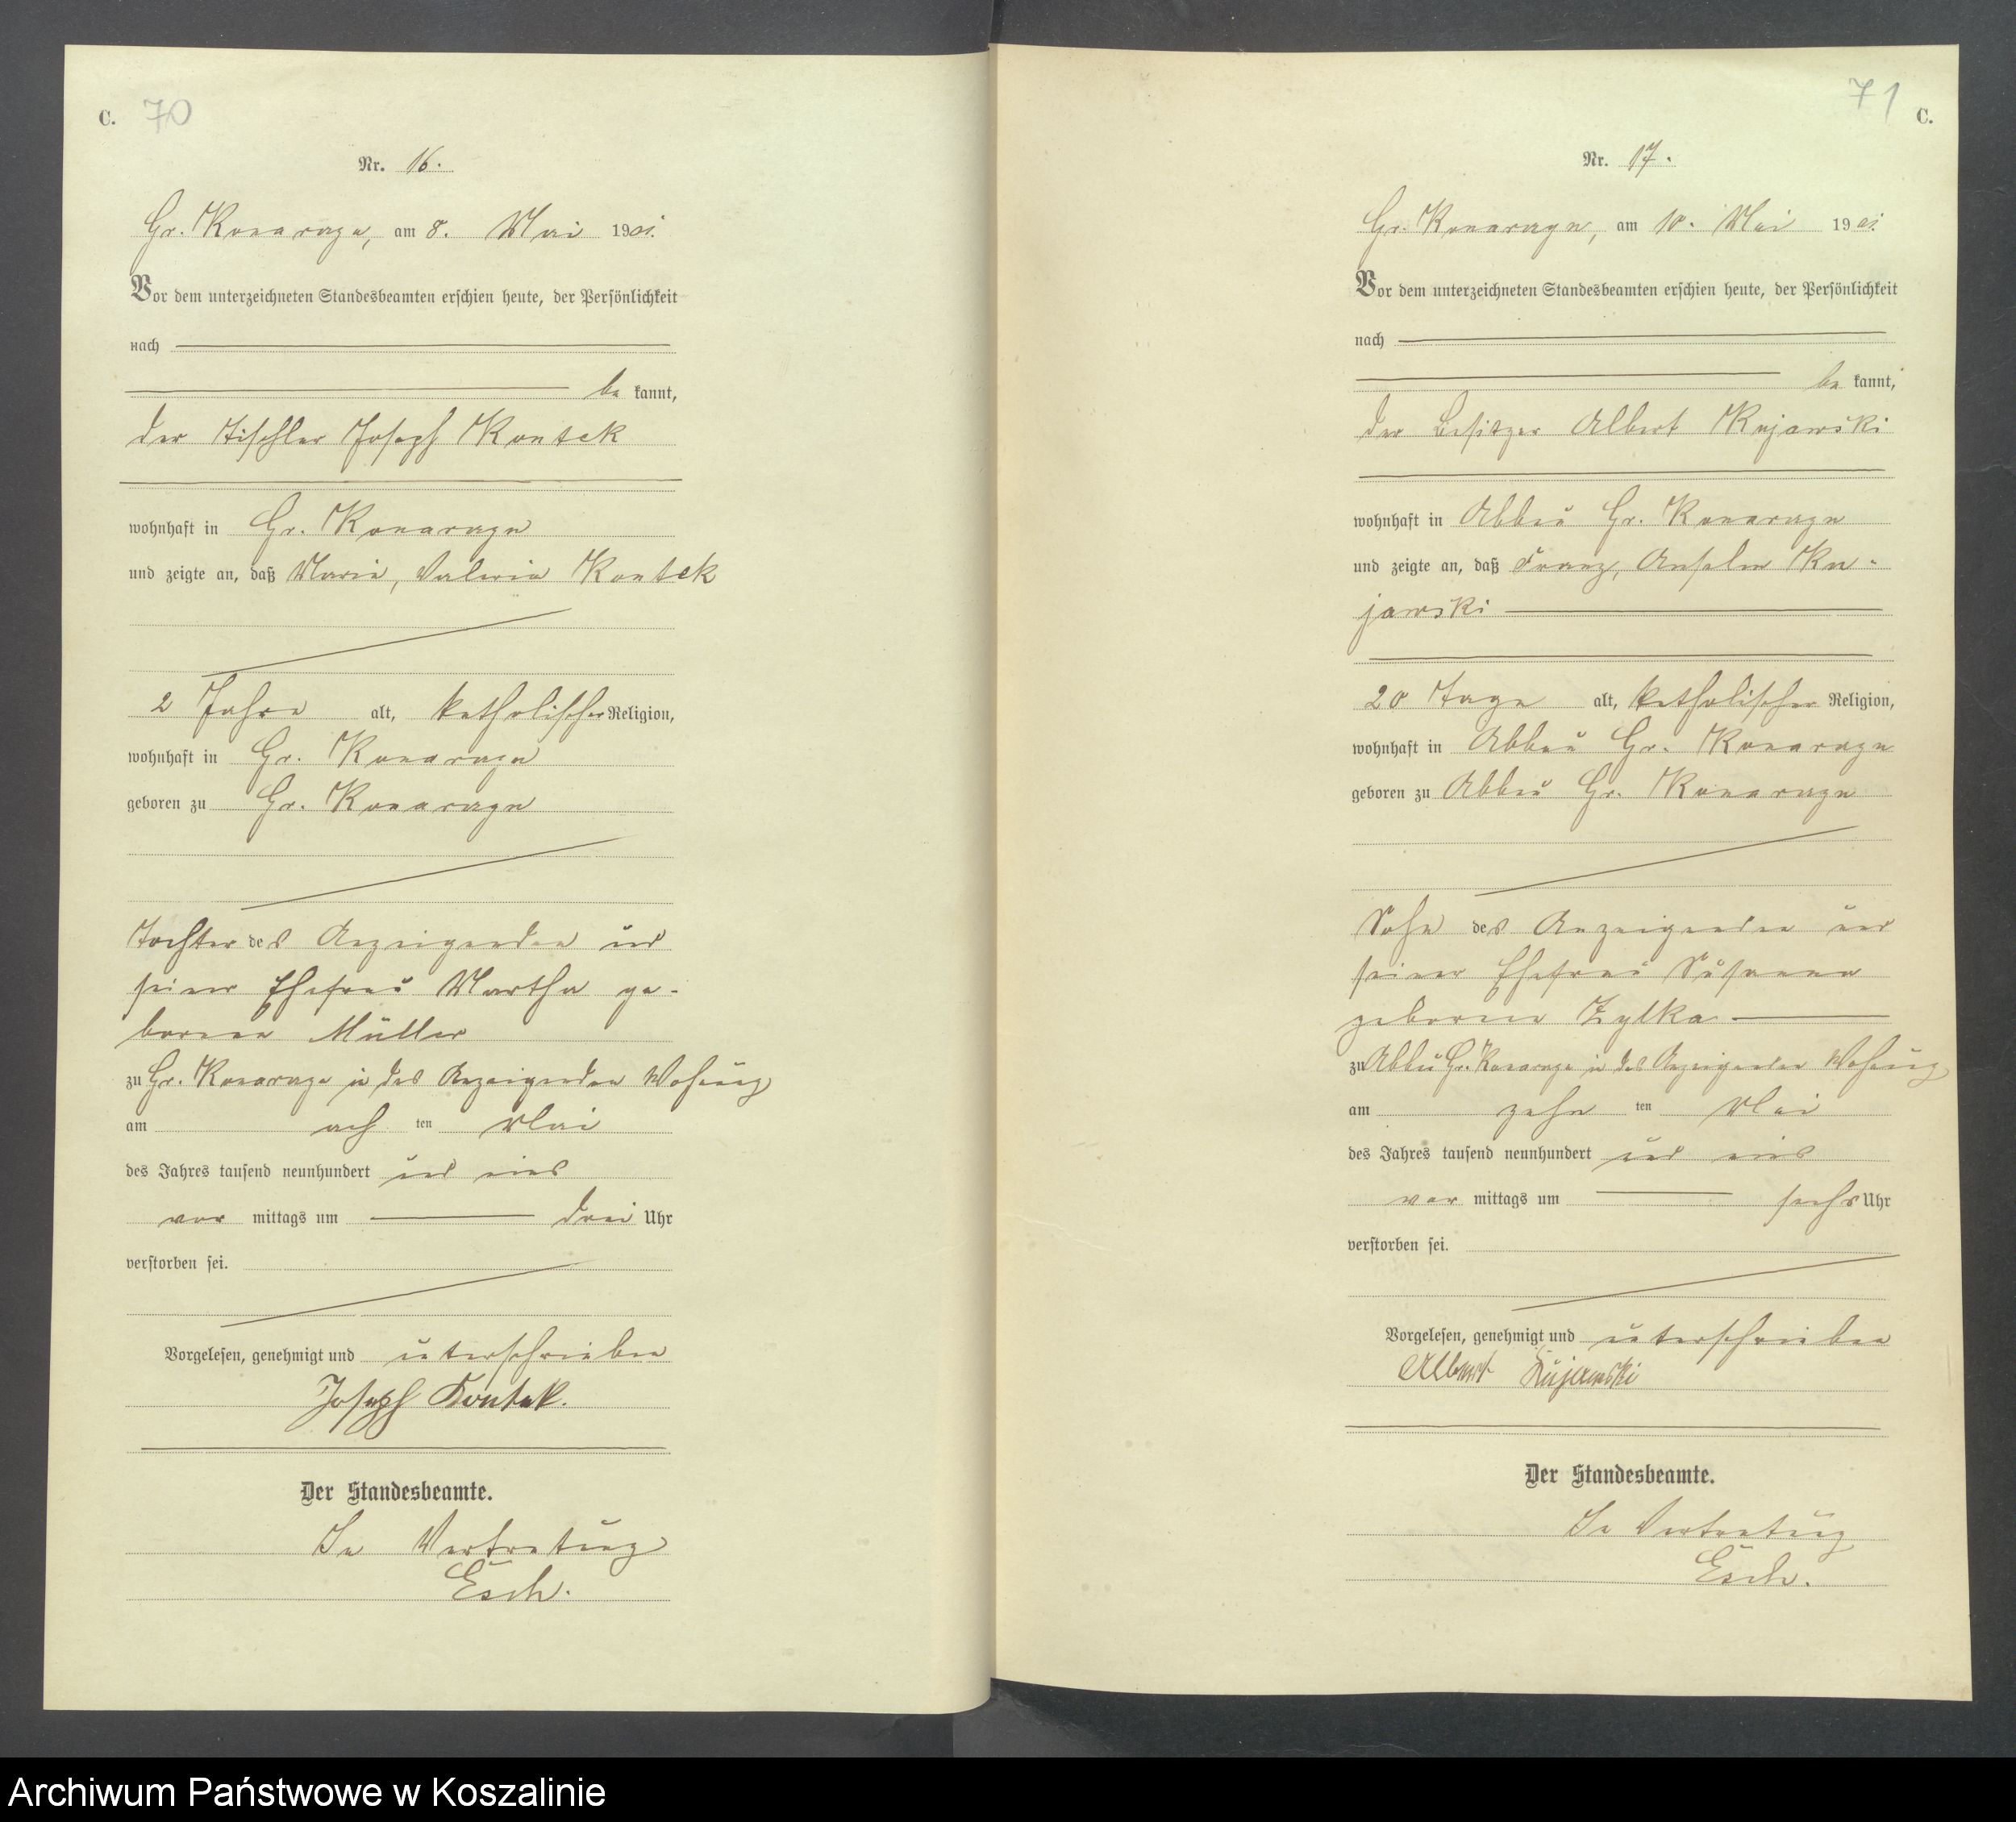 C. 70
Nr. 16.
Gr. Konarczyn, am 8. Mai 1901.
Vor dem unterzeichneten Standesbeamten erschien heute, der Persönlichkeit
nach
be kannt,
der Tischler Joseph Kontek
wohnhaft in Gr. Konarczyn
und zeigte an, daß Maria, Valeria Kontek
2 Jahre alt, katholischer Religion,
wohnhaft in Gr. Konarczyn
geboren zu Gr. Konarczyn
Tochter des Anzeigenden und
seiner Ehefrau Martha ge-
borenen Müller
zu Gr. Konarczyn in des Anzeigenden Wohnung
am ach ten Mai
des Jahres tausend neunhundert und eins
vor mittags um drei Uhr
verstorben sei.
Vorgelesen, genehmigt und unterschrieben
Joseph Kontek.
Der Standesbeamte.
In Vertretung
Esch.
71 C.
Nr. 17.
Gr. Konarczyn, am 10. Mai 1901.
Vor dem unterzeichneten Standesbeamten erschien heute, der Persönlichkeit
nach
be kannt,
der Besitzer Albert Kujawski
wohnhaft in Abbau Gr. Konarczyn
und zeigte an, daß Franz, Anselm Ku-
jawski
20 Tage alt, katholischer Religion,
wohnhaft in Abbau Gr. Konarczyn
geboren zu Abbau Gr. Konarczyn
Sohn des Anzeigenden und
seiner Ehefrau Susanna
geborenen Zylka
zu Abbau Gr. Konarczyn in des Anzeigenden Wohnung
am zehn ten Mai
des Jahres tausend neunhundert und eins
vor mittags um sechs Uhr
verstorben sei.
Vorgelesen, genehmigt und unterschrieben
Albert Kujawski
Der Standesbeamte.
In Vertretung
Esch.
Archiwum Państwowe w Koszalinie